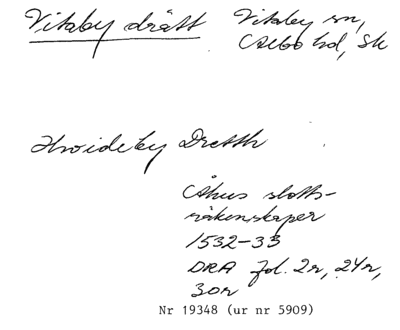 Vitaby drätt Vitaby sn,
Albo hd, Sk
Hwideby Dretth
Åhus slotts-
räkenskaper
1532-33
DRA fol. 2r, 24r,
30r
Nr 19348 (ur nr 5909)